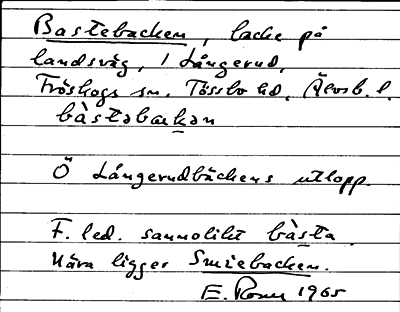 Bastebacken, backe på
landsväg, i Långerud,
Fröskogs sn. Tössbo hd, Älvsb. l.
bàstabakan
Ö Långerudbäckens utlopp.
F. led. sannolikt bàsta
Nära ligger Smiebacken.
E. Rosen 1965